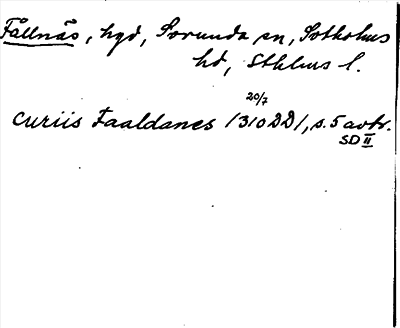 Fållnäs, hgd, Sorunda sn, Sotholms
hd, Sthlms l.
20/7
curiis Faaldanes 1310 DD 1, s. 5 avtr.
SD II